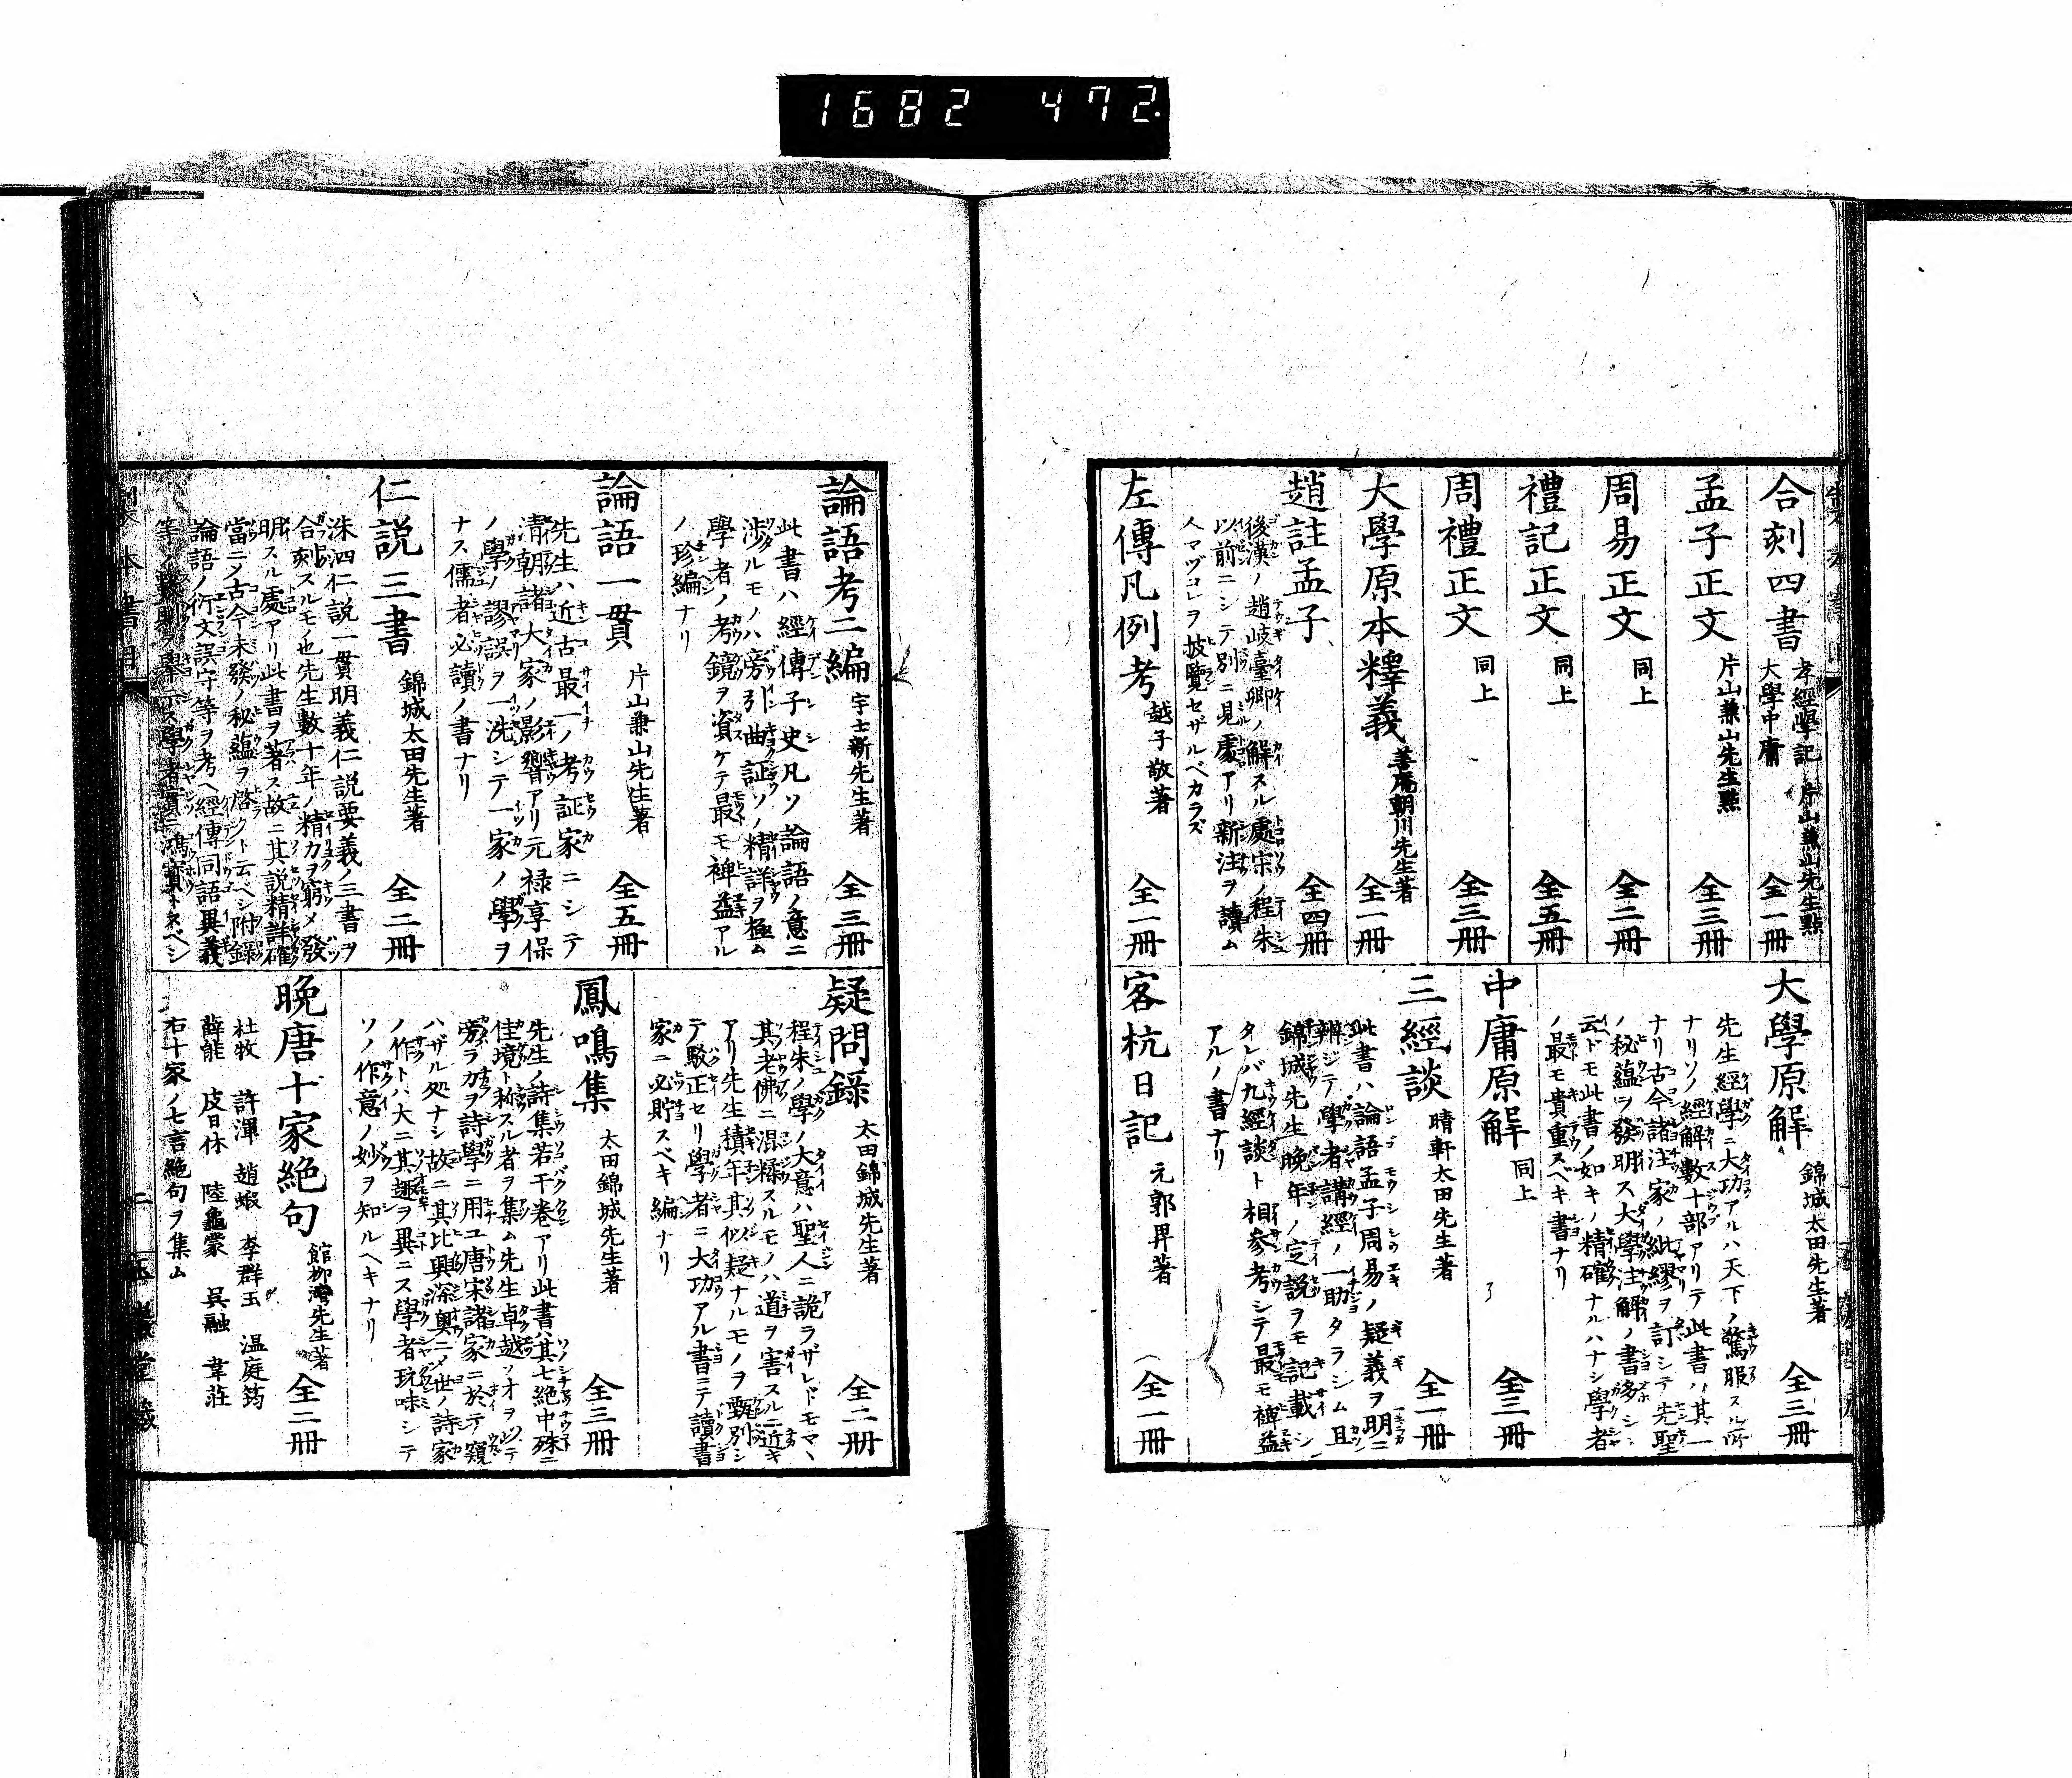 1682 472
合刻四書 孝經學記 大學中庸 片山兼山先生點 全一冊
孟子正文 片山兼山先生點 全三冊
周易正文 同上 全二冊
禮記正文 同上 全五冊
周禮正文 同上 全三冊
大學原本釋義 善庵朝川先生著 全一冊
趙註孟子 全四冊
後漢ノ趙岐臺卿ノ解スル處宋ノ程朱
以前ニシテ別ニ見處アリ新注ヲ讀ム
人マヅコレヲ披覽セザルベカラズ
左傳凡例考 越子敬著 全一冊
大學原解 錦城太田先生著 全三冊
先生經學ニ大功アルハ天下ノ驚服スル所
ナリソノ經解數十部アリテ此書ハ其一
ナリ古今諸注家ノ紕繆ヲ訂シテ先聖
ノ秘蘊ヲ發明ス大學注解ノ書多シ
云ヘドモ此書ノ如キノ精確ナルハナシ學者
ノ最モ貴重スベキ書ナリ
中庸原解 同上 全三冊
三經談 晴軒太田先生著 全一冊
此書ハ論語孟子周易ノ疑義ヲ明ニ
辨ジテ學者講經ノ一助タラシム且
錦城先生晩年ノ定説ヲモ記載シ
タレバ九經談ト相參考シテ最モ裨益
アルノ書ナリ
客杭日記 元郭畀著 全一冊
論語考二編 宇士新先生著 全三冊
此書ハ經傳子史凡ソ論語ノ意ニ
渉ルモノハ旁引曲証ソノ精詳ヲ極ム
學者ノ考鏡ヲ資ケテ最モ裨益アル
ノ珍編ナリ
論語一貫 片山兼山先生著 全五冊
先生ハ近古最一ノ考証家ニシテ
清朝諸大家ノ影響アリ元禄享保
ノ學ノ謬誤ヲ一洗シテ一家ノ學ヲ
ナス儒者必讀ノ書ナリ
仁説三書 錦城太田先生著 全二冊
洙泗仁説一貫明義仁説要義ノ三書ヲ
合刻スルモノ也先生數十年ノ精力ヲ窮メ發
明スル處アリ此書ヲ著ス故ニ其説精詳確
當ニシテ古今未發ノ秘蘊ヲ啓クト云ベシ附録
論語ノ衍文誤字等ヲ考ヘ經傳同語異義
等ノ數則ヲ擧示ス學者實ニ鴻寶トスベシ
疑問録 太田錦城先生著 全二冊
程朱ノ學ノ大意ハ聖人ニ詭ラザレドモママ
其老佛ニ混糅スルモノハ道ヲ害スルニ近キ
アリ先生積年其似疑ナルモノヲ甄別シ
テ駁正セリ學者ニ大功アル書ニテ讀書
家ニ必貯スベキ編ナリ
鳳鳴集 太田錦城先生著 全三冊
先生ノ詩集若干卷アリ此書ハ其七絶中殊ニ
佳境ト称スル者ヲ集ム先生卓越ノオヲ以テ
旁ラ力ヲ詩學ニ用ユ唐宋諸家ニ於テ窺
ハザル処ナシ故ニ其比興深奥ニメ世ノ詩家
ノ作トハ大ニ其趣ヲ異ニス學者玩味シテ
ソノ作意ノ妙ヲ知ルヘキナリ
晩唐十家絶句 館柳灣先生著 全二冊
杜牧 許渾 趙嘏 李群玉 温庭筠
薛能 皮日休 陸龜蒙 呉融 韋荘
右十家ノ七言絶句ヲ集ム
製本書目 二 玉巖堂藏